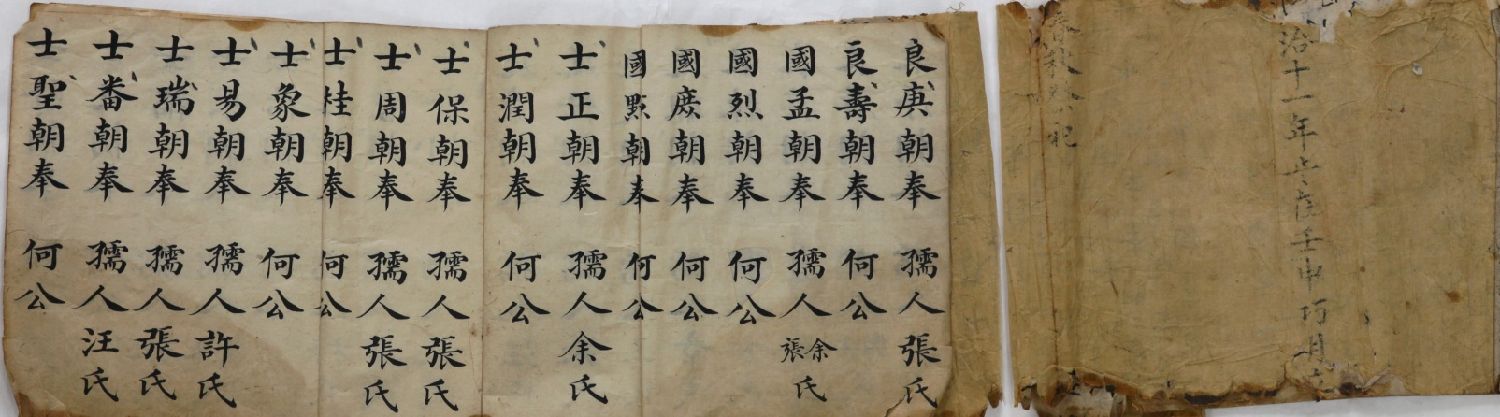 治十一年歲壬申巧月
良庚朝奉 孺人張氏
良壽朝奉 何公
國孟朝奉 孺人余張氏
國烈朝奉 何公
國度朝奉 何公
國點朝奉 何公
士正朝奉 孺人余氏
士潤朝奉 何公
士保朝奉 孺人張氏
士周朝奉 孺人張氏
士桂朝奉 何公
士象朝奉 何公
士易朝奉 孺人許氏
士瑞朝奉 孺人張氏
士番朝奉 孺人汪氏
士聖朝奉 何公